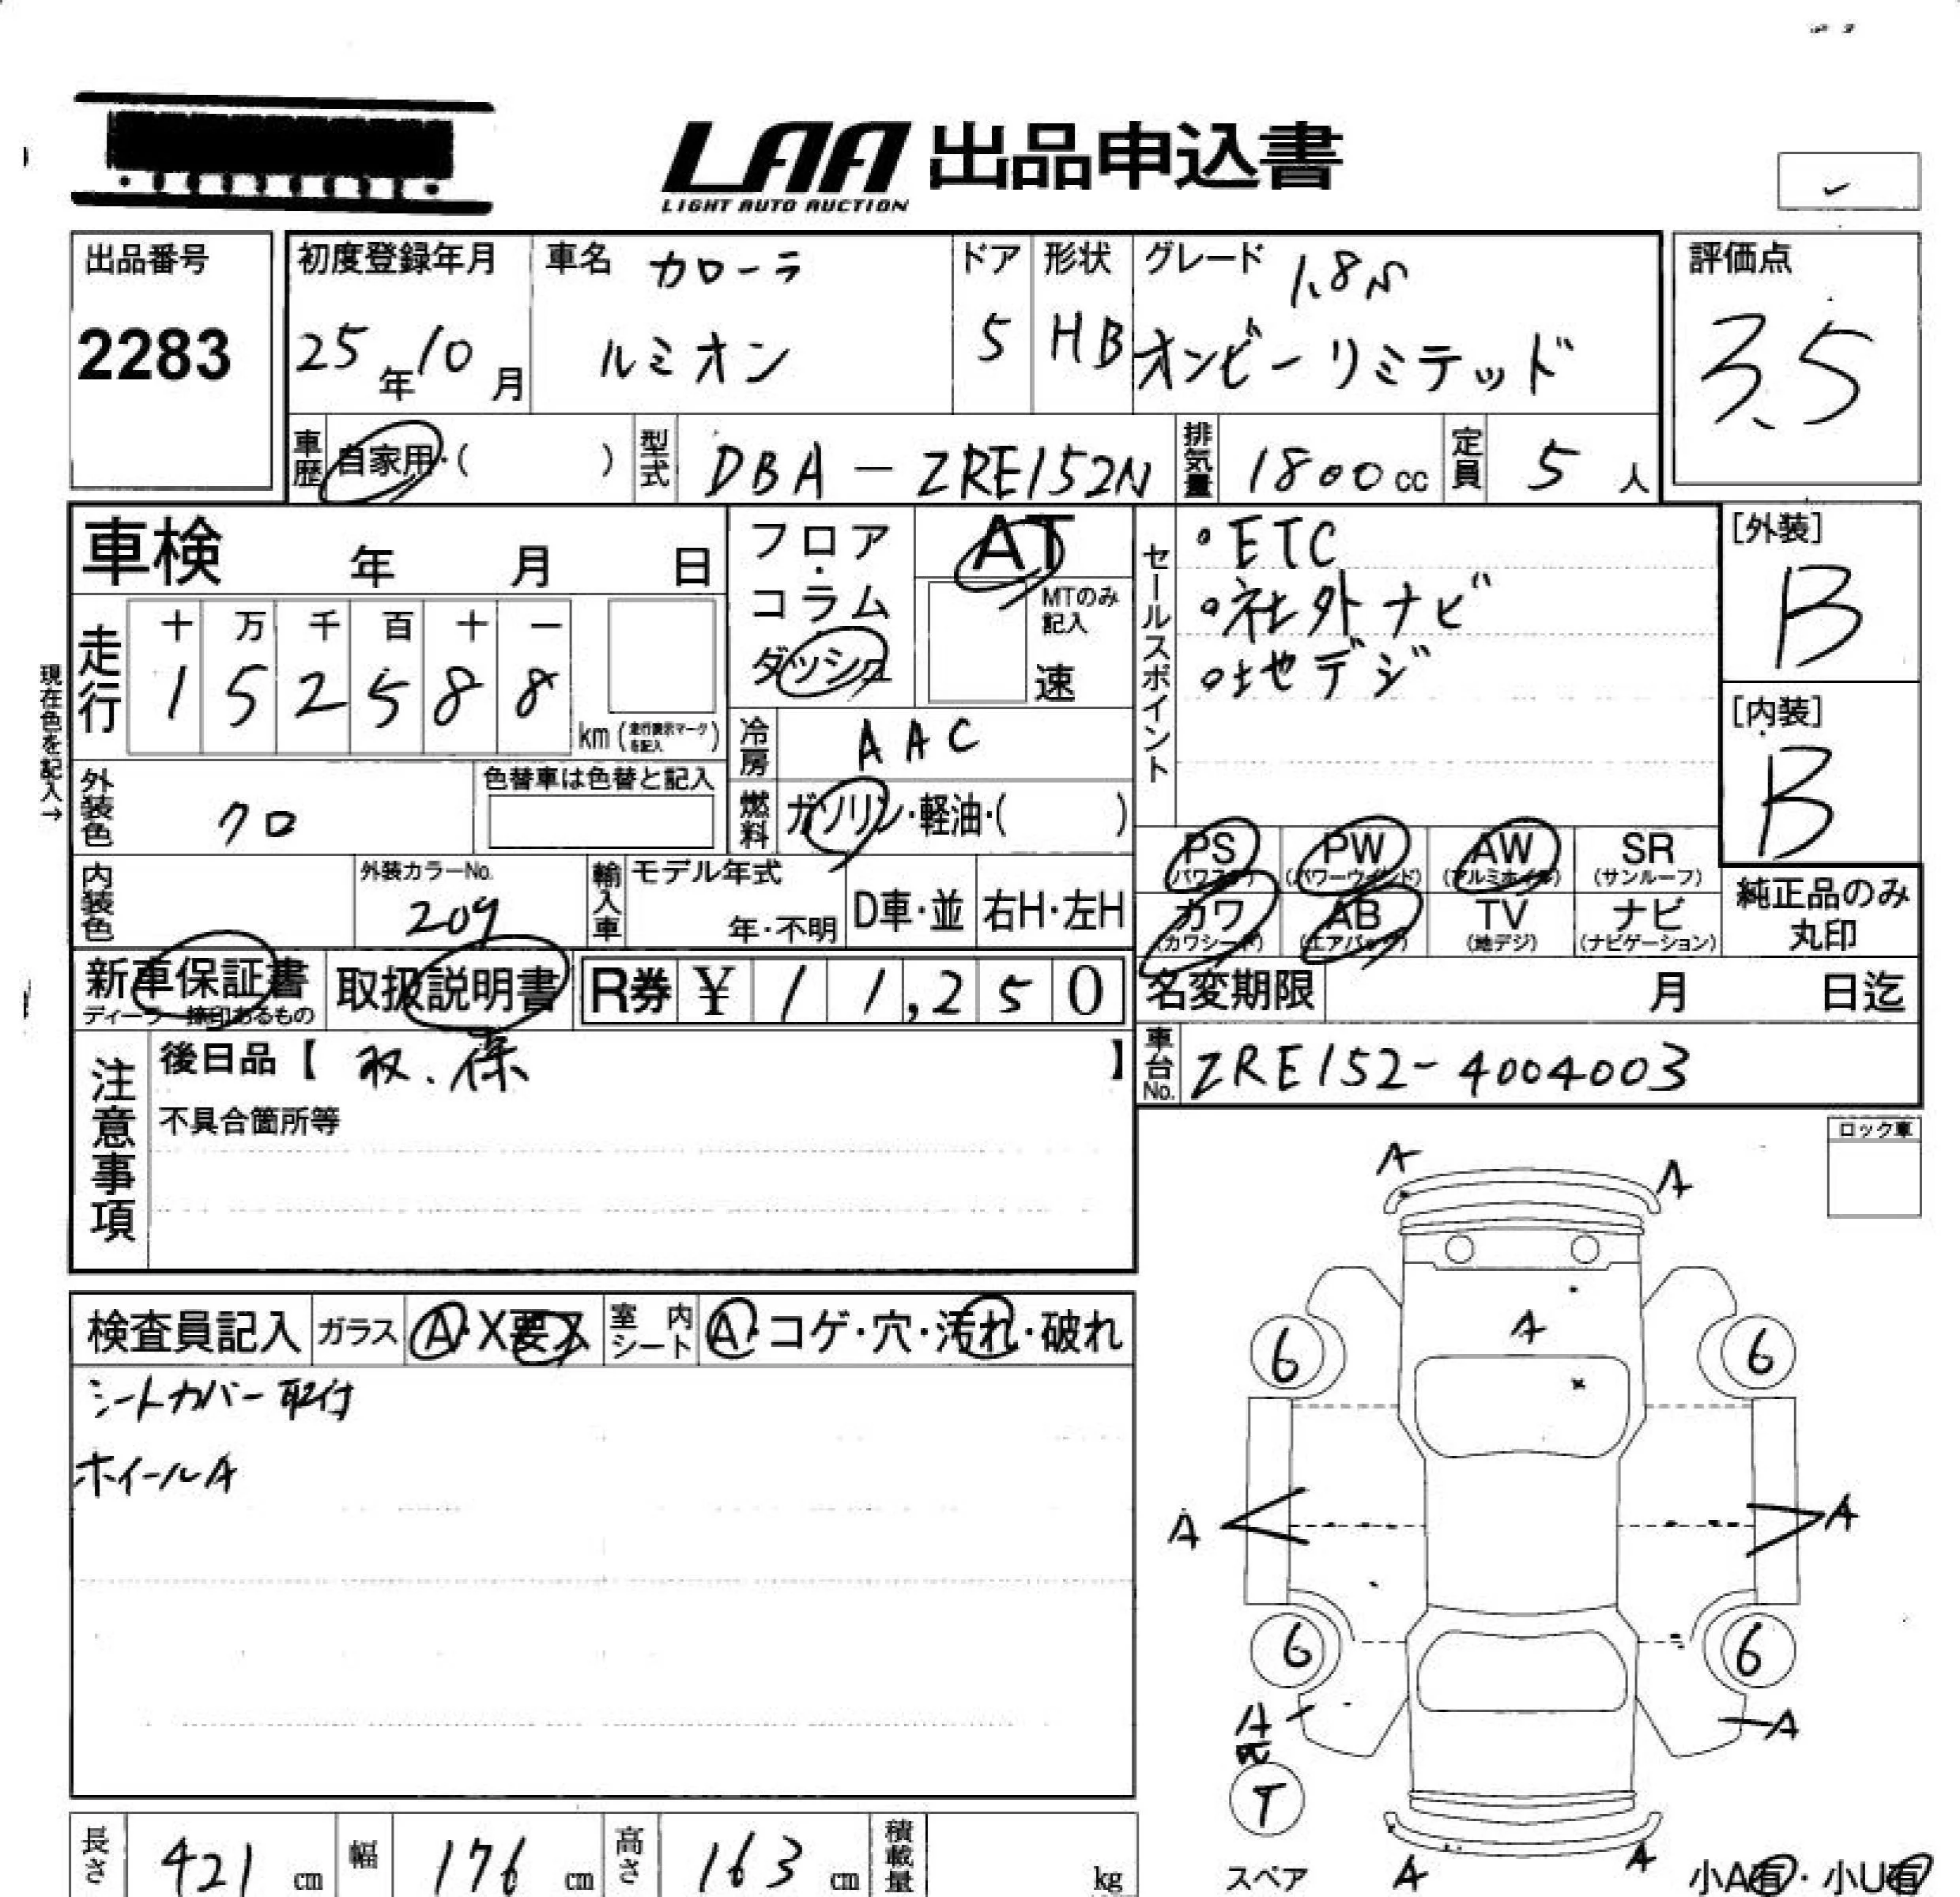 LAA 出品申込書
LIGHT AUTO AUCTION
出品番号
2283
初度登録年月
25年10月
車名 カローラ
ルミオン
ドア
5
形状
HB
グレード 1.8S
オンビーリミテッド
評価点
3.5
車歴 自家用・( )
型式 DBA-ZRE152N
排気量 1800cc
定員 5人
車検 年 月 日
走行
十 万 千 百 十 一
1 5 2 5 8 8
km(走行表示マークを記入)
現在色を記入→
フロア・
コラム・
ダッシュ
AT
MTのみ記入
速
冷房 AAC
燃料 ガソリン・軽油・( )
セールスポイント
・ETC
・社外ナビ
・地デジ
[外装]
B
[内装]
B
外装色 クロ
色替車は色替と記入
内装色
外装カラーNo.
209
輸入車 モデル年式
年・不明
D車・並
右H・左H
PS (パワステ)
PW (パワーウインド)
AW (アルミホイル)
SR (サンルーフ)
カワ (カワシート)
AB (エアバッグ)
TV (地デジ)
ナビ (ナビゲーション)
純正品のみ
丸印
新車保証書
ディーラー捺印あるもの
取扱説明書
R券 ¥11,250
名変期限 月 日迄
車台No. ZRE152-4004003
注意事項
後日品【 取.保 】
不具合箇所等
ロック車
検査員記入
ガラス A・X要ス
室内シート A・コゲ・穴・汚れ・破れ
シートカバー取付
ホイールA
A A
A
6 6
A A
6 6
A A
T
スペア
A A
小A有・小U有
長さ 421 cm
幅 176 cm
高さ 163 cm
積載量 kg